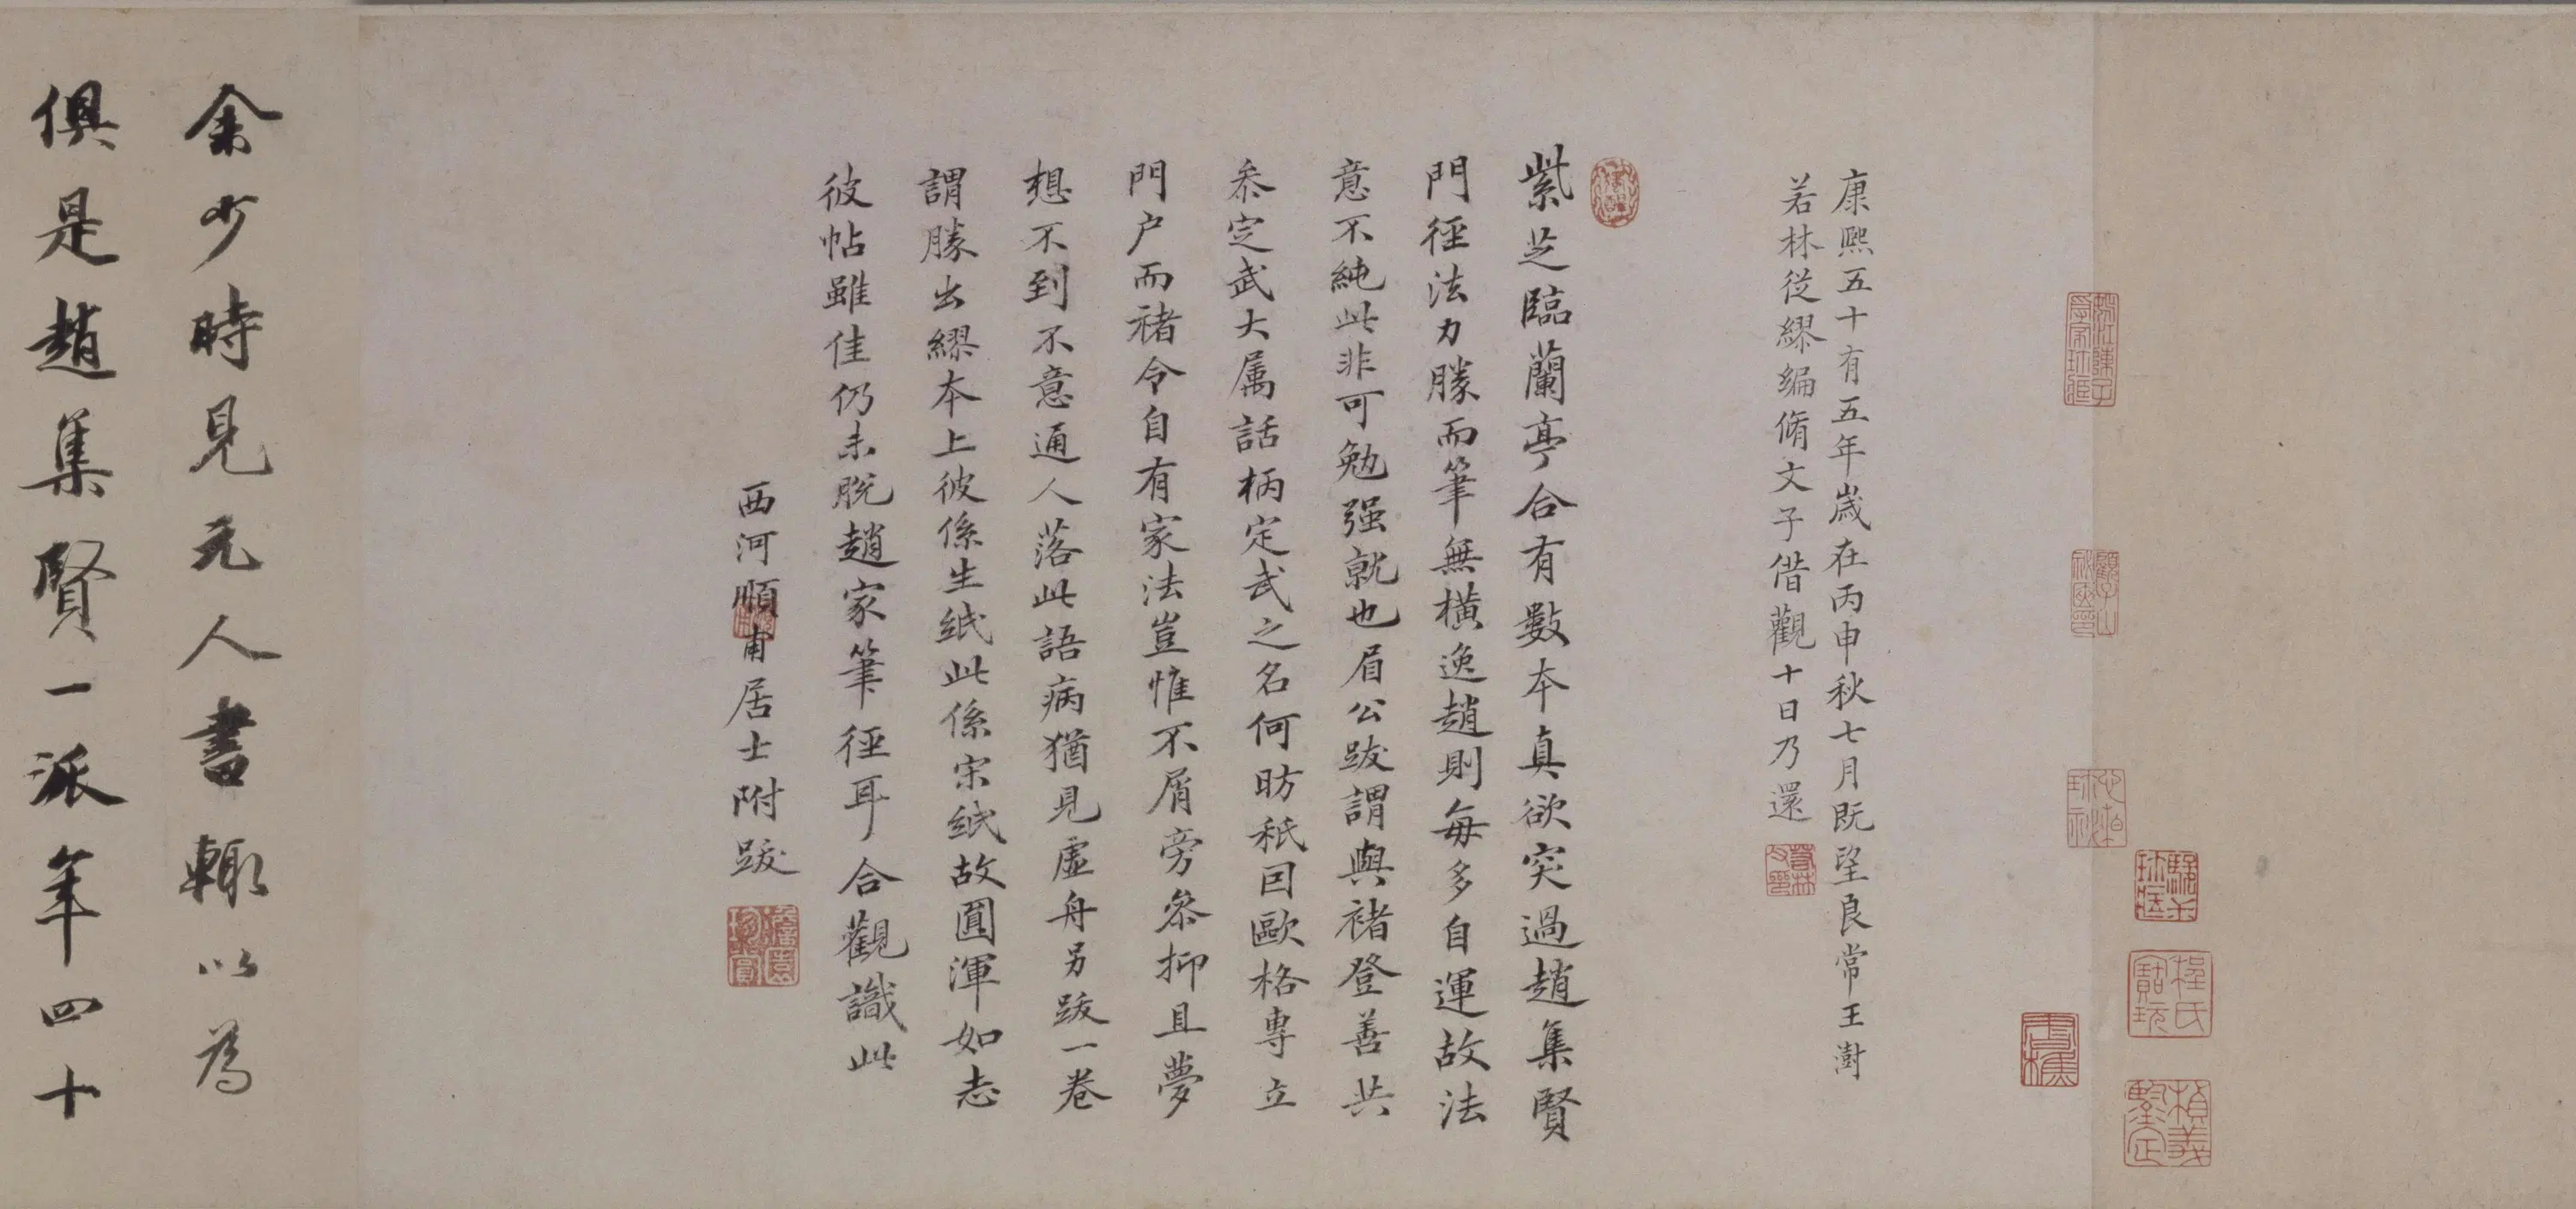 康熙五十有五年歲在丙申秋七月既望良常王澍
若林從繆編脩文子借觀十日乃還
紫芝臨蘭亭合有數本真欲突過趙集賢
門徑法力勝而筆無橫逸趙則每多自運故法
意不純此非可勉强就也眉公跋謂與褚登善共
叅定武大属話柄定武之名何昉秖因歐格專立
門户而褚令自有家法豈惟不屑旁叅抑且夢
想不到不意通人落此語病猶見虛舟另跋一卷
謂勝出繆本上彼係生紙此係宋紙故圓渾如志
彼帖雖佳仍未脫趙家筆徑耳合觀識此
西河順甫居士附跋
余少時見元人書輙以為
俱是趙集賢一派年四十